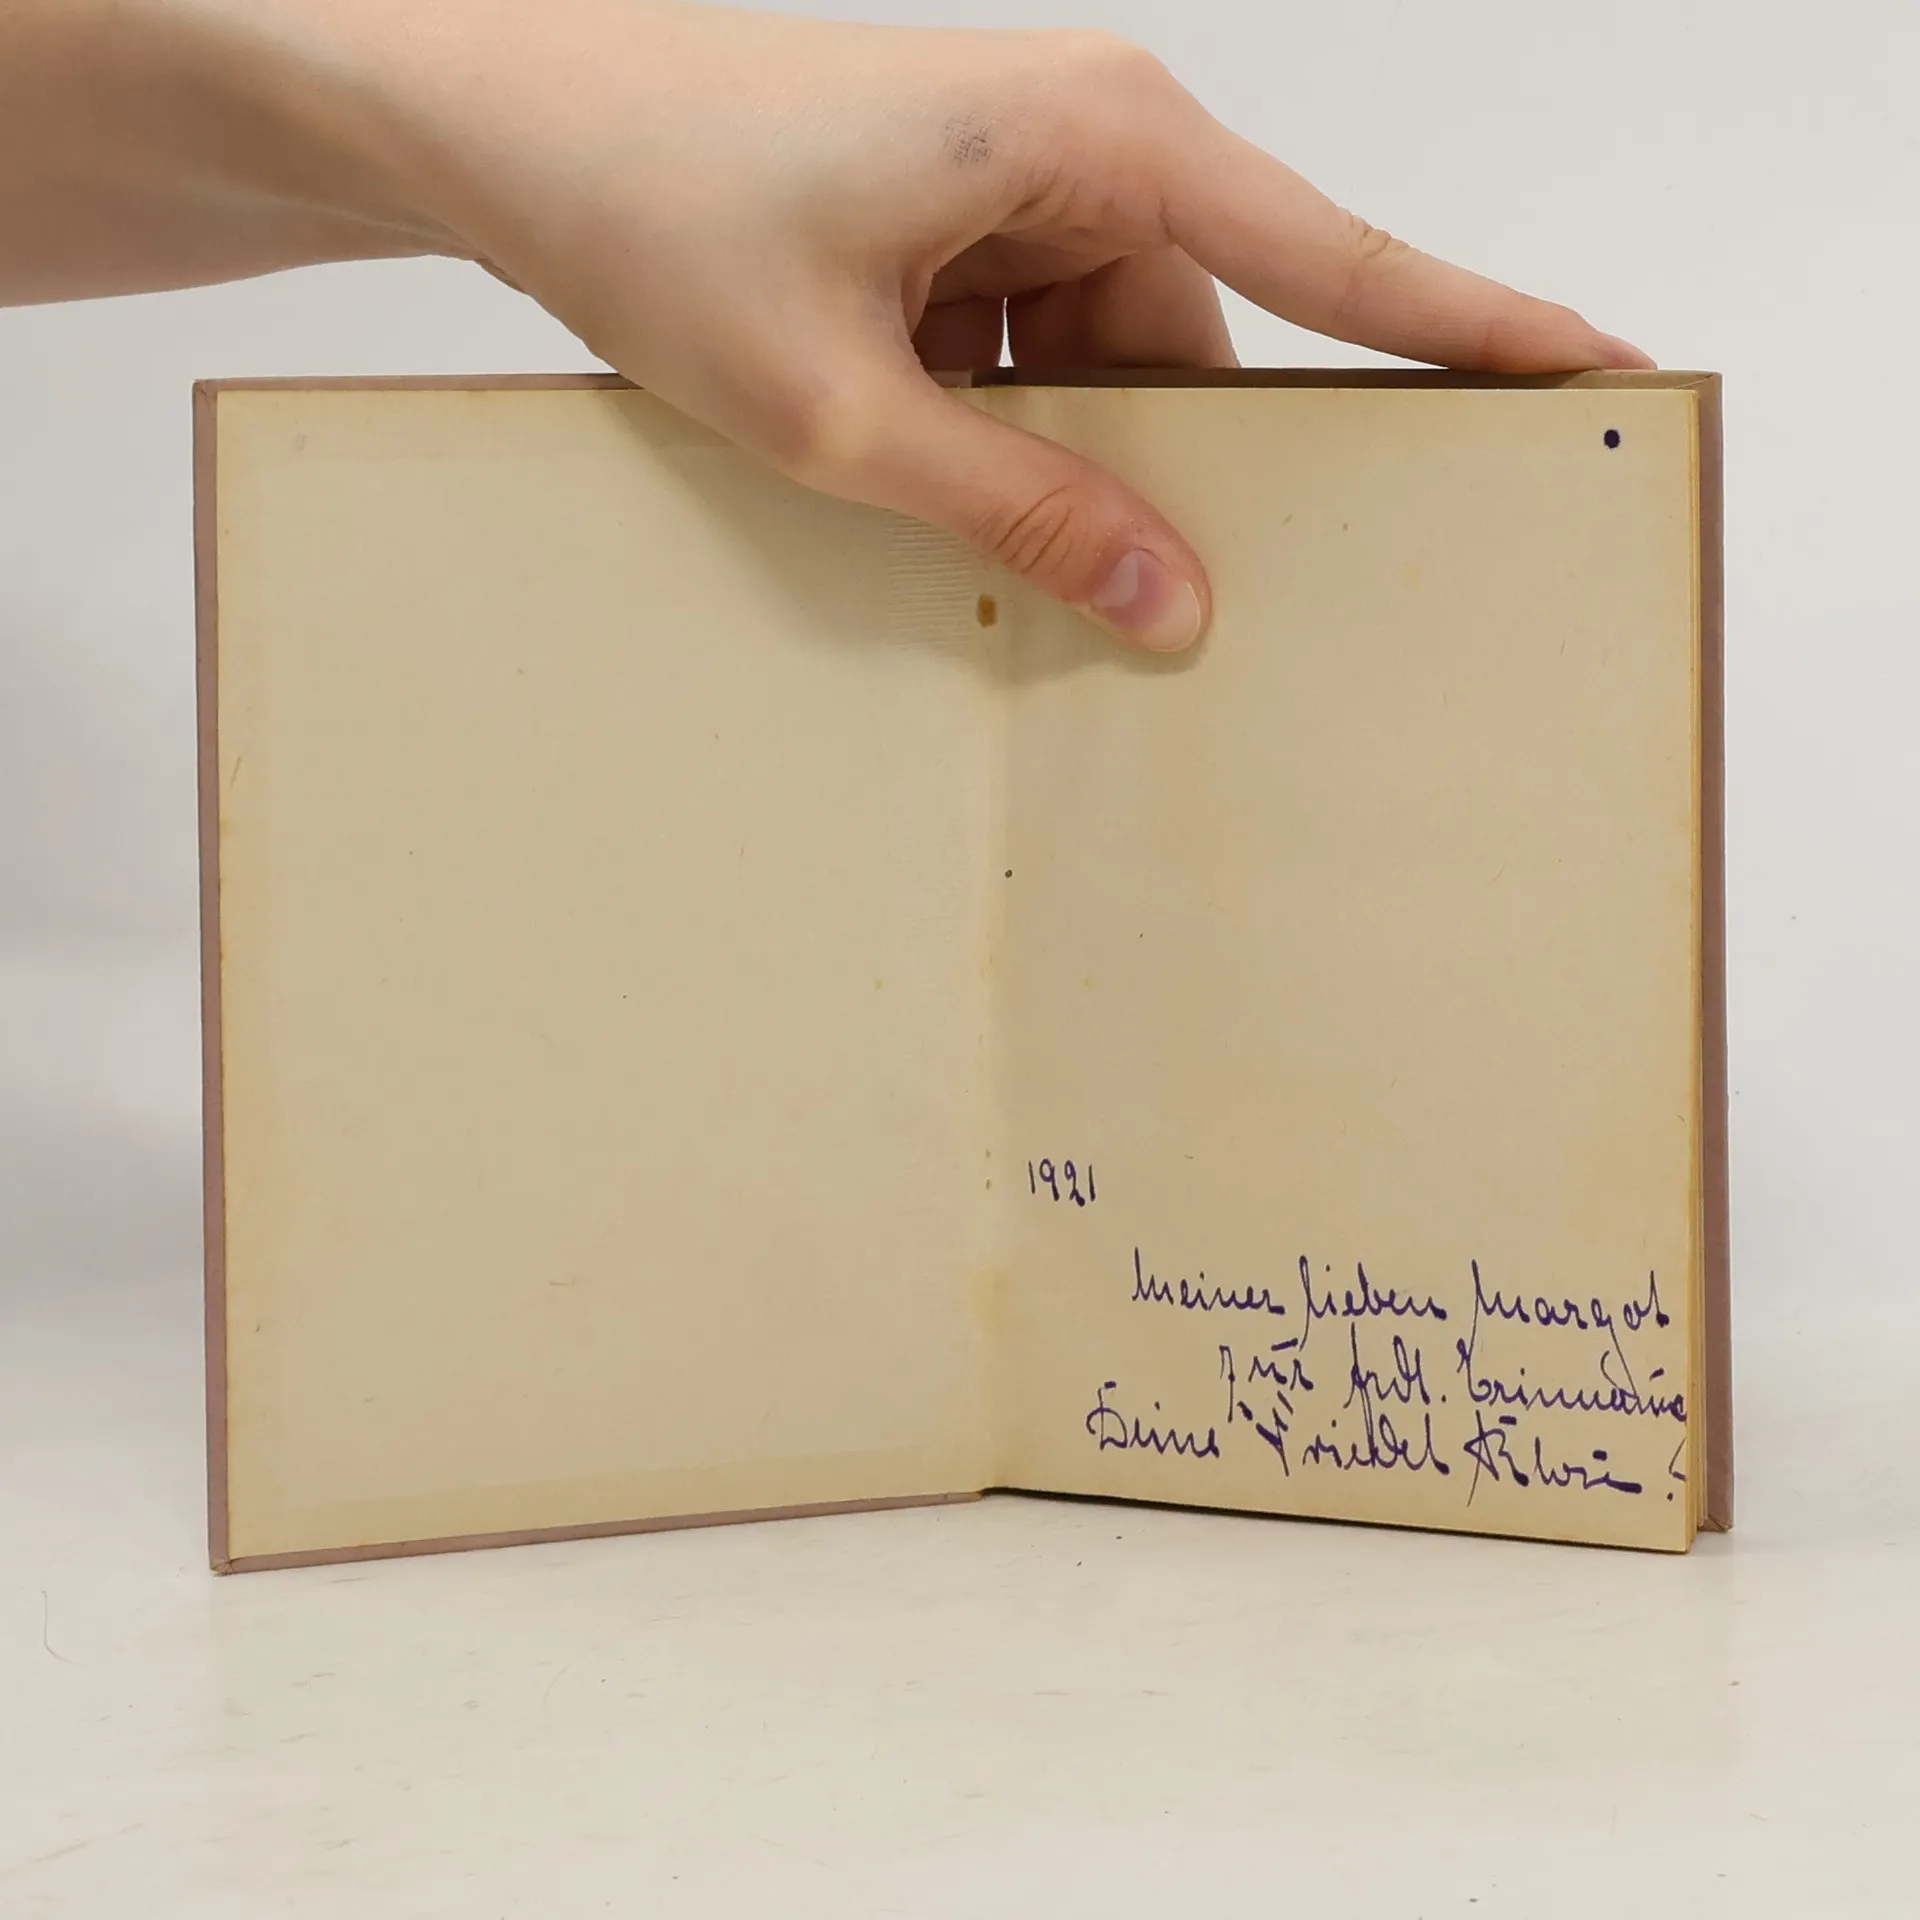 1921
Meiner lieben Margot
zur frdl. Erinnerung
Deine Friedel